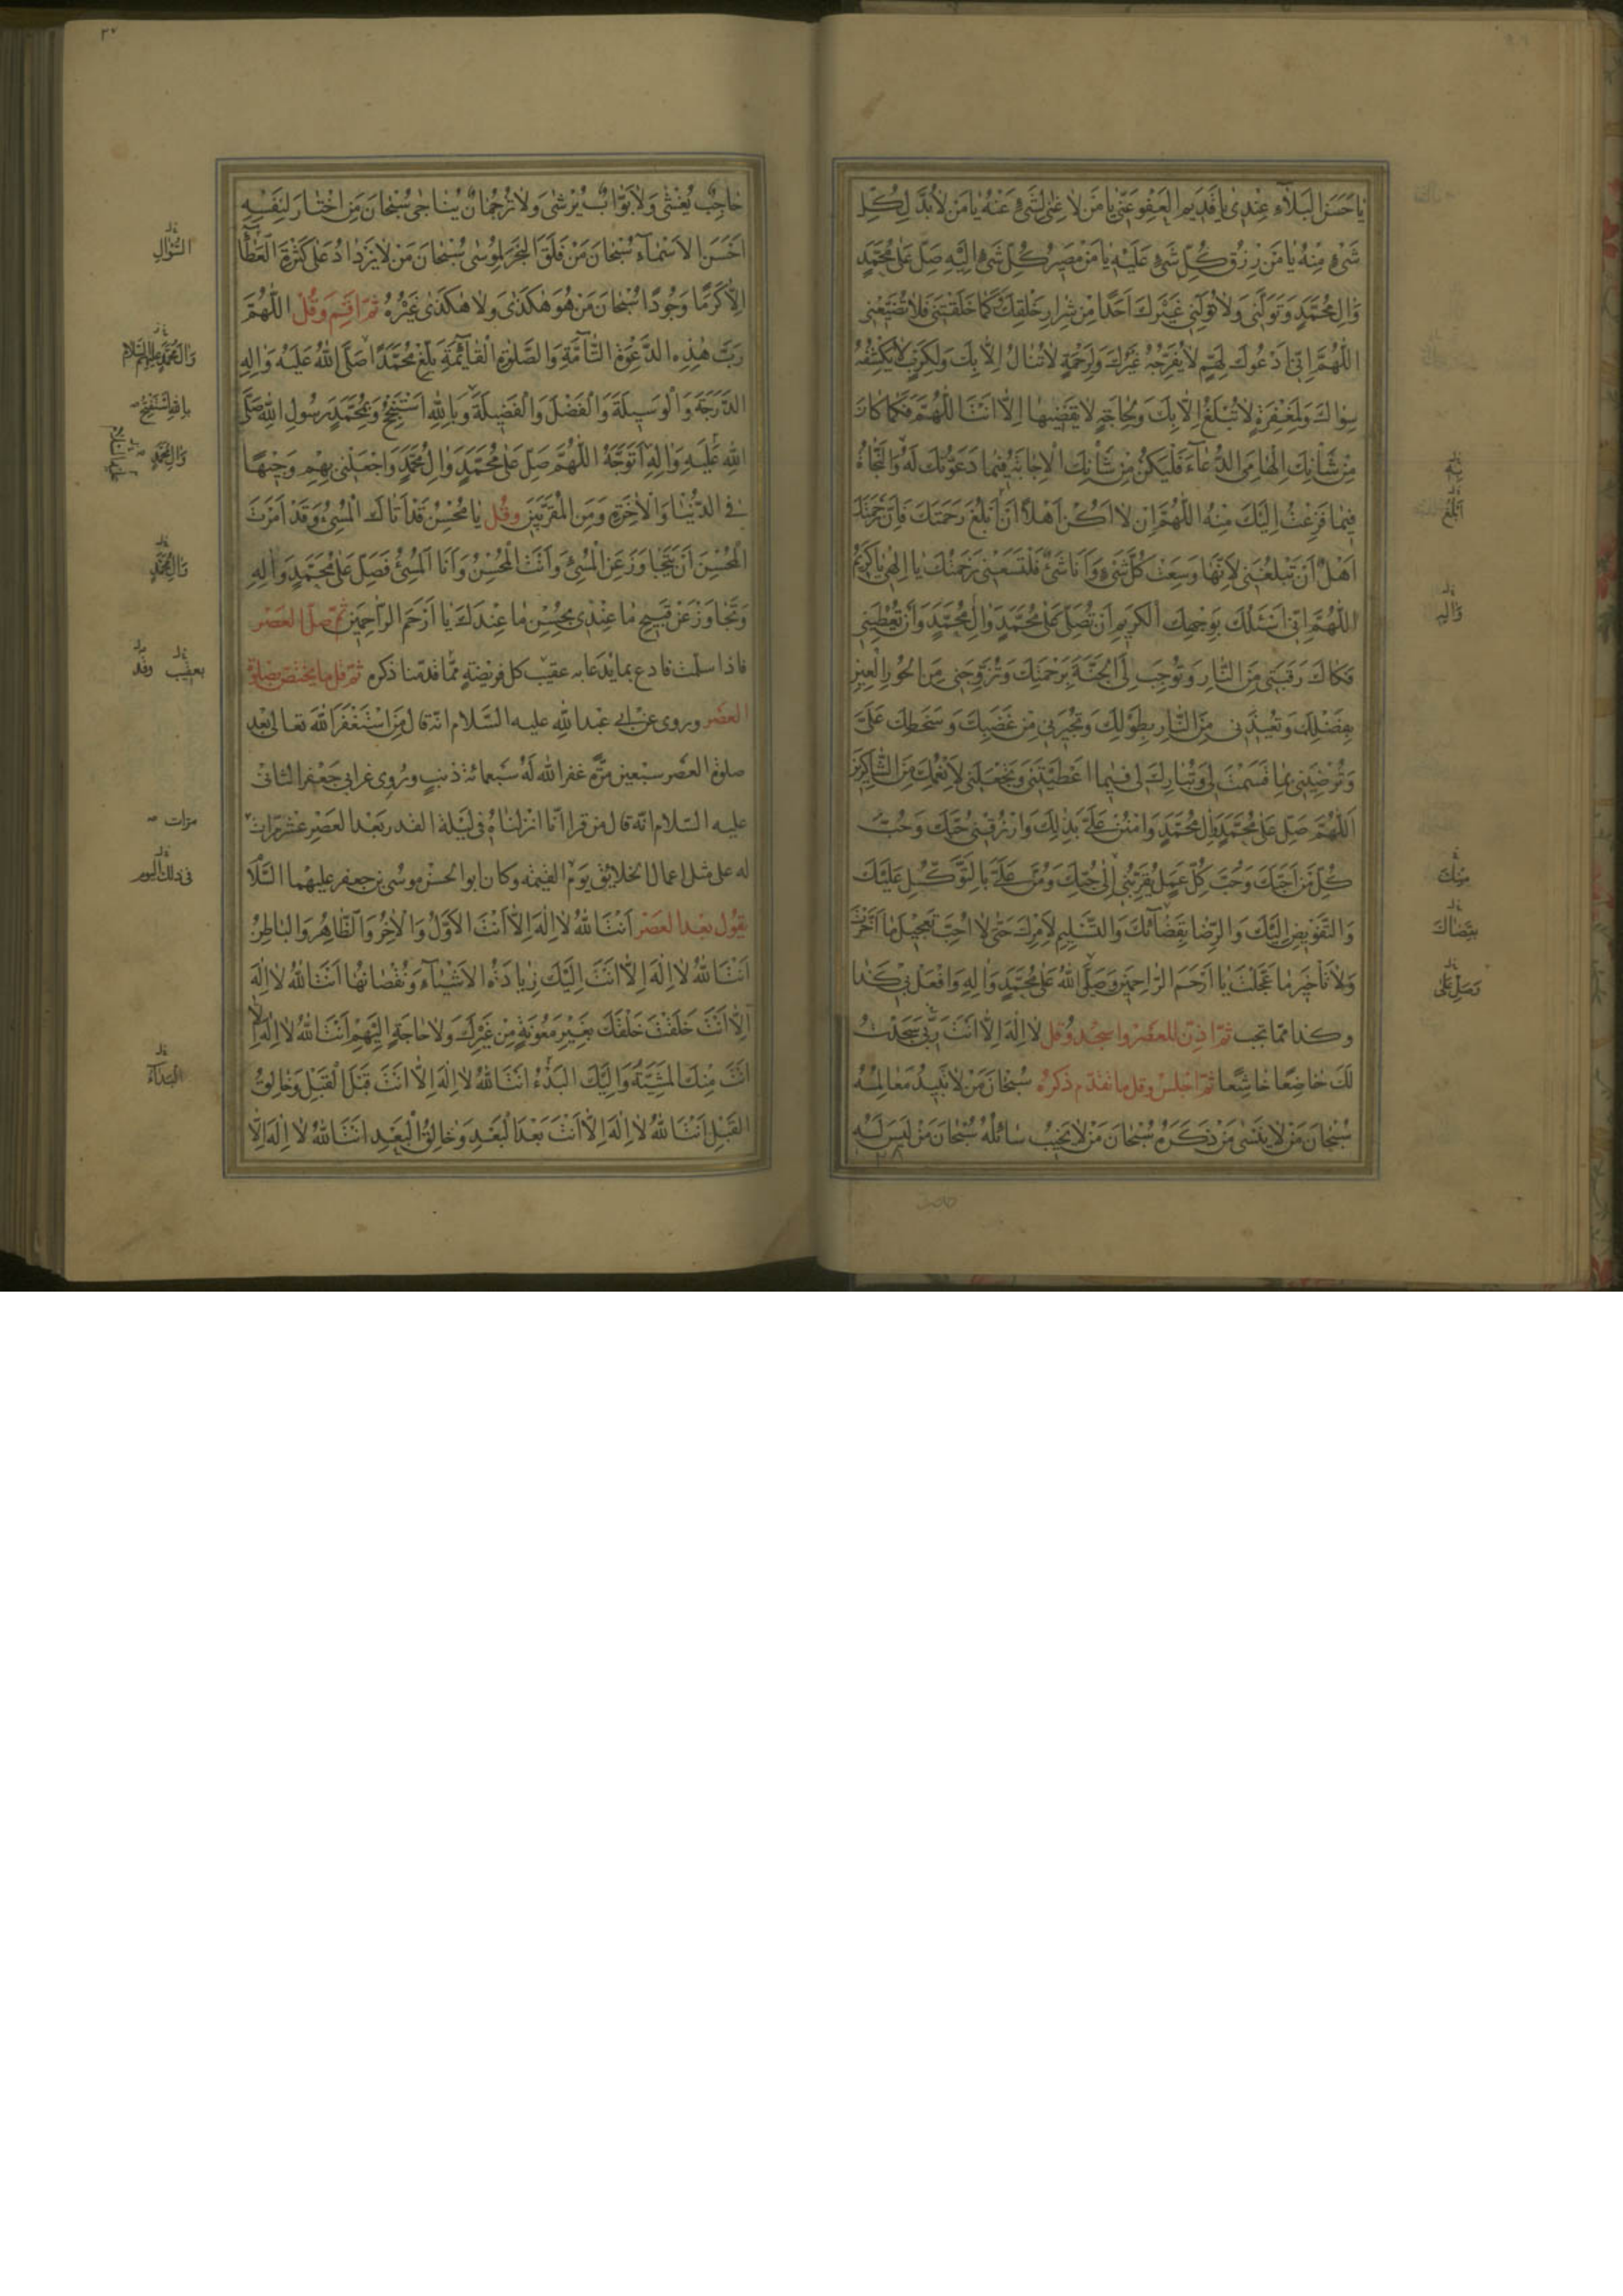 يا حَسَنَ الْبَلاءِ عِنْدى يا قَديمَ الْعَفْوِ عَنّى يا مَنْ لا غِنى لِشَىْءٍ عَنْهُ يا مَنْ لا بُدَّ لِكُلِّ
شَىْءٍ مِنْهُ يا مَنْ رِزْقُ كُلِّ شَىْءٍ عَلَيْهِ يا مَنْ مَصيرُ كُلِّ شَىْءٍ اِلَيْهِ صَلِّ عَلى مُحَمَّدٍ
وَالِ مُحَمَّدٍ وَتَوَلَّنى وَلا تُوَلِّنى غَيْرَكَ اَحَدًا مِنْ شِرارِ خَلْقِكَ كَما خَلَقْتَنى فَلا تُضَيِّعْنى
اللّهُمَّ اِنّى اَدْعُوكَ لِهَمٍّ لا يُفَرِّجُهُ غَيْرُكَ وَلِرَحْمَةٍ لا تُنالُ اِلاّ بِكَ وَلِكَرْبٍ لا يَكْشِفُهُ
سِواكَ وَلِمَغْفِرَةٍ لا تُبْلَغُ اِلاّ بِكَ وَلِحاجَةٍ لا يَقْضيها اِلاّ اَنْتَ اللّهُمَّ فَكَما كانَ
مِنْ شَأْنِكَ اِلْهامِىَ الدُّعاءَ فَلْيَكُنْ مِنْ شَأْنِكَ الْاِجابَةُ فيما دَعَوْتُكَ لَهُ وَالنَّجاةُ
فيما فَزِعْتُ اِلَيْكَ مِنْهُ اللّهُمَّ اِنْ لا اَكُنْ اَهْلاً اَنْ اَبْلُغَ رَحْمَتَكَ فَاِنَّ رَحْمَتَكَ
اَهْلٌ اَنْ تَبْلُغَنى لِاَنَّها وَسِعَتْ كُلَّ شَىْءٍ وَاَنَا شَىْءٌ فَلْتَسَعْنى رَحْمَتُكَ يا اِلهى يا كَريمُ
اللّهُمَّ اِنّى اَسْئَلُكَ بِوَجْهِكَ الْكَريمِ اَنْ تُصَلِّىَ عَلى مُحَمَّدٍ وَالِ مُحَمَّدٍ وَاَنْ تُعْطِيَنى
فَكاكَ رَقَبَتى مِنَ النّارِ وَتُوجِبَ لِىَ الْجَنَّةَ بِرَحْمَتِكَ وَتُزَوِّجَنى مِنَ الْحُورِ الْعينِ
بِفَضْلِكَ وَتُعيذَنى مِنَ النّارِ بِطَوْلِكَ وَتُجيرَنى مِنْ غَضَبِكَ وَسَخَطِكَ عَلَىَّ
وَتُرْضِيَنى بِما قَسَمْتَ لى وَتُبارِكَ لى فيما اَعْطَيْتَنى وَتَجْعَلَنى لِاَنْعُمِكَ مِنَ الشّاكِرينَ
اَللّهُمَّ صَلِّ عَلى مُحَمَّدٍ وَالِ مُحَمَّدٍ وَامْنُنْ عَلَىَّ بِذلِكَ وَارْزُقْنى حُبَّكَ وَحُبَّ
كُلِّ مَنْ اَحَبَّكَ وَحُبَّ كُلِّ عَمَلٍ يُقَرِّبُنى اِلى حُبِّكَ وَمُنَّ عَلَىَّ بِالتَّوَكُّلِ عَلَيْكَ
وَالتَّفْويضِ اِلَيْكَ وَالرِّضا بِقَضائِكَ وَالتَّسْليمِ لِاَمْرِكَ حَتّى لا اُحِبَّ تَعْجيلَ ما اَخَّرْتَ
وَلا تَأْخيرَ ما عَجَّلْتَ يا اَرْحَمَ الرّاحِمينَ وَصَلَّى اللّهُ عَلى مُحَمَّدٍ وَالِهِ وَافْعَلْ بى كَذا
وكذا مما تحب ثمّ اذّن للعصر واسجد وقل لا اِلهَ اِلاّ اَنْتَ رَبّى سَجَدْتُ
لَكَ خاضِعًا خاشِعًا ثمّ اجلس وقل ما تقدّم ذكره سُبْحانَ مَنْ لا تَبيدُ مَعالِمُهُ
سُبْحانَ مَنْ لا يَنْسى مَنْ ذَكَرَهُ سُبْحانَ مَنْ لا يَخيبُ سائِلُهُ سُبْحانَ مَنْ لَيْسَ لَهُ
اَبْلُغَ
وَالِهِ
مِنْكَ
بِقَضاكَ
وَصَلِّ عَلى
٣٠
حاجِبٌ يُغْشى وَلا بَوّابٌ يُرْشى وَلا تَرْجُمانٌ يُناجى سُبْحانَ مَنِ اخْتارَ لِنَفْسِهِ
اَحْسَنَ الْاَسْماءِ سُبْحانَ مَنْ فَلَقَ الْبَحْرَ لِمُوسى سُبْحانَ مَنْ لا يَزْدادُ عَلى كَثْرَةِ الْعَطاءِ
اِلاّ كَرَمًا وَجُودًا سُبْحانَ مَنْ هُوَ هكَذى وَلا هكَذى غَيْرُهُ ثمّ اقم وَقُلْ اللّهُمَّ
رَبَّ هذِهِ الدَّعْوَةِ التّامَّةِ وَالصَّلوةِ الْقائِمَةِ بَلِّغْ مُحَمَّدًا صَلَّى اللّهُ عَلَيْهِ وَالِهِ
الدَّرَجَةَ وَالْوَسيلَةَ وَالْفَضْلَ وَالْفَضيلَةَ وَبِاللّهِ اَسْتَنْجِحُ وَبِمُحَمَّدٍ رَسُولِ اللّهِ صَلَّى
اللّهُ عَلَيْهِ وَالِهِ اَتَوَجَّهُ اللّهُمَّ صَلِّ عَلى مُحَمَّدٍ وَالِ مُحَمَّدٍ وَاجْعَلْنى بِهِمْ وَجيهًا
فِى الدُّنْيا وَالْاخِرَةِ وَمِنَ الْمُقَرَّبينَ وقُل يا مُحْسِنُ قَدْ اَتاكَ الْمُسىءُ وَقَدْ اَمَرْتَ
الْمُحْسِنَ اَنْ يَتَجاوَزَ عَنِ الْمُسىءِ وَاَنْتَ الْمُحْسِنُ وَاَنَا الْمُسىءُ فَصَلِّ عَلى مُحَمَّدٍ وَالِهِ
وَتَجاوَزْ عَنْ قَبيحِ ما عِنْدى بِحُسْنِ ما عِنْدَكَ يا اَرْحَمَ الرّاحِمينَ ثمّ صلّ العصر
فاذا سلّمت فادع بما يدعا به عقيب كل فريضةٍ ممّا قدّمنا ذكره ثمّ قل ما يختصّ بصلوة
العصر وروى عن ابى عبدالله عليه السّلام انّه قال مَنِ اسْتَغْفَرَ اللّهَ تعالى بعد
صلوة العصر سبعين مرّة غفر الله له سبعمائة ذنبٍ وروى عن ابى جعفر الثانى
عليه السّلام انّه قال من قرا انّا انزلناه فى ليلة القدر بعد العصر عشر مرّات
له على مثل اعمال الخلايق يوم القيمة وكان ابو الحسن موسى بن جعفر عليهما السّلا
يقول بعد العصر اَنْتَ اللّهُ لا اِلهَ اِلاّ اَنْتَ الْاَوَّلُ وَالْاخِرُ وَالظّاهِرُ وَالْباطِنُ
اَنْتَ اللّهُ لا اِلهَ اِلاّ اَنْتَ اِلَيْكَ زِيادَةُ الْاَشْياءِ وَنُقْصانُها اَنْتَ اللّهُ لا اِلهَ
اِلاّ اَنْتَ خَلَقْتَ خَلْقَكَ بِغَيْرِ مَعُونَةٍ مِنْ غَيْرِكَ وَلا حاجَةٍ اِلَيْهِمْ اَنْتَ اللّهُ لا اِلهَ اِلاّ
اَنْتَ مِنْكَ الْمَشِيَّةُ وَاِلَيْكَ الْبَدْءُ اَنْتَ اللّهُ لا اِلهَ اِلاّ اَنْتَ قَبْلَ الْقَبْلِ وَخالِقُ
الْقَبْلِ اَنْتَ اللّهُ لا اِلهَ اِلاّ اَنْتَ بَعْدَ الْبَعْدِ وَخالِقُ الْبَعْدِ اَنْتَ اللّهُ لا اِلهَ اِلاّ
السُّؤالِ
وَالِ مُحَمَّدٍ عليهم السلام
بِاللهِ اَسْتَفْتِحُ
وَالِ مُحَمَّدٍ
وَالِ مُحَمَّدٍ
بعقيب وقد
مرات
فى ذلك اليوم
البَداءُ